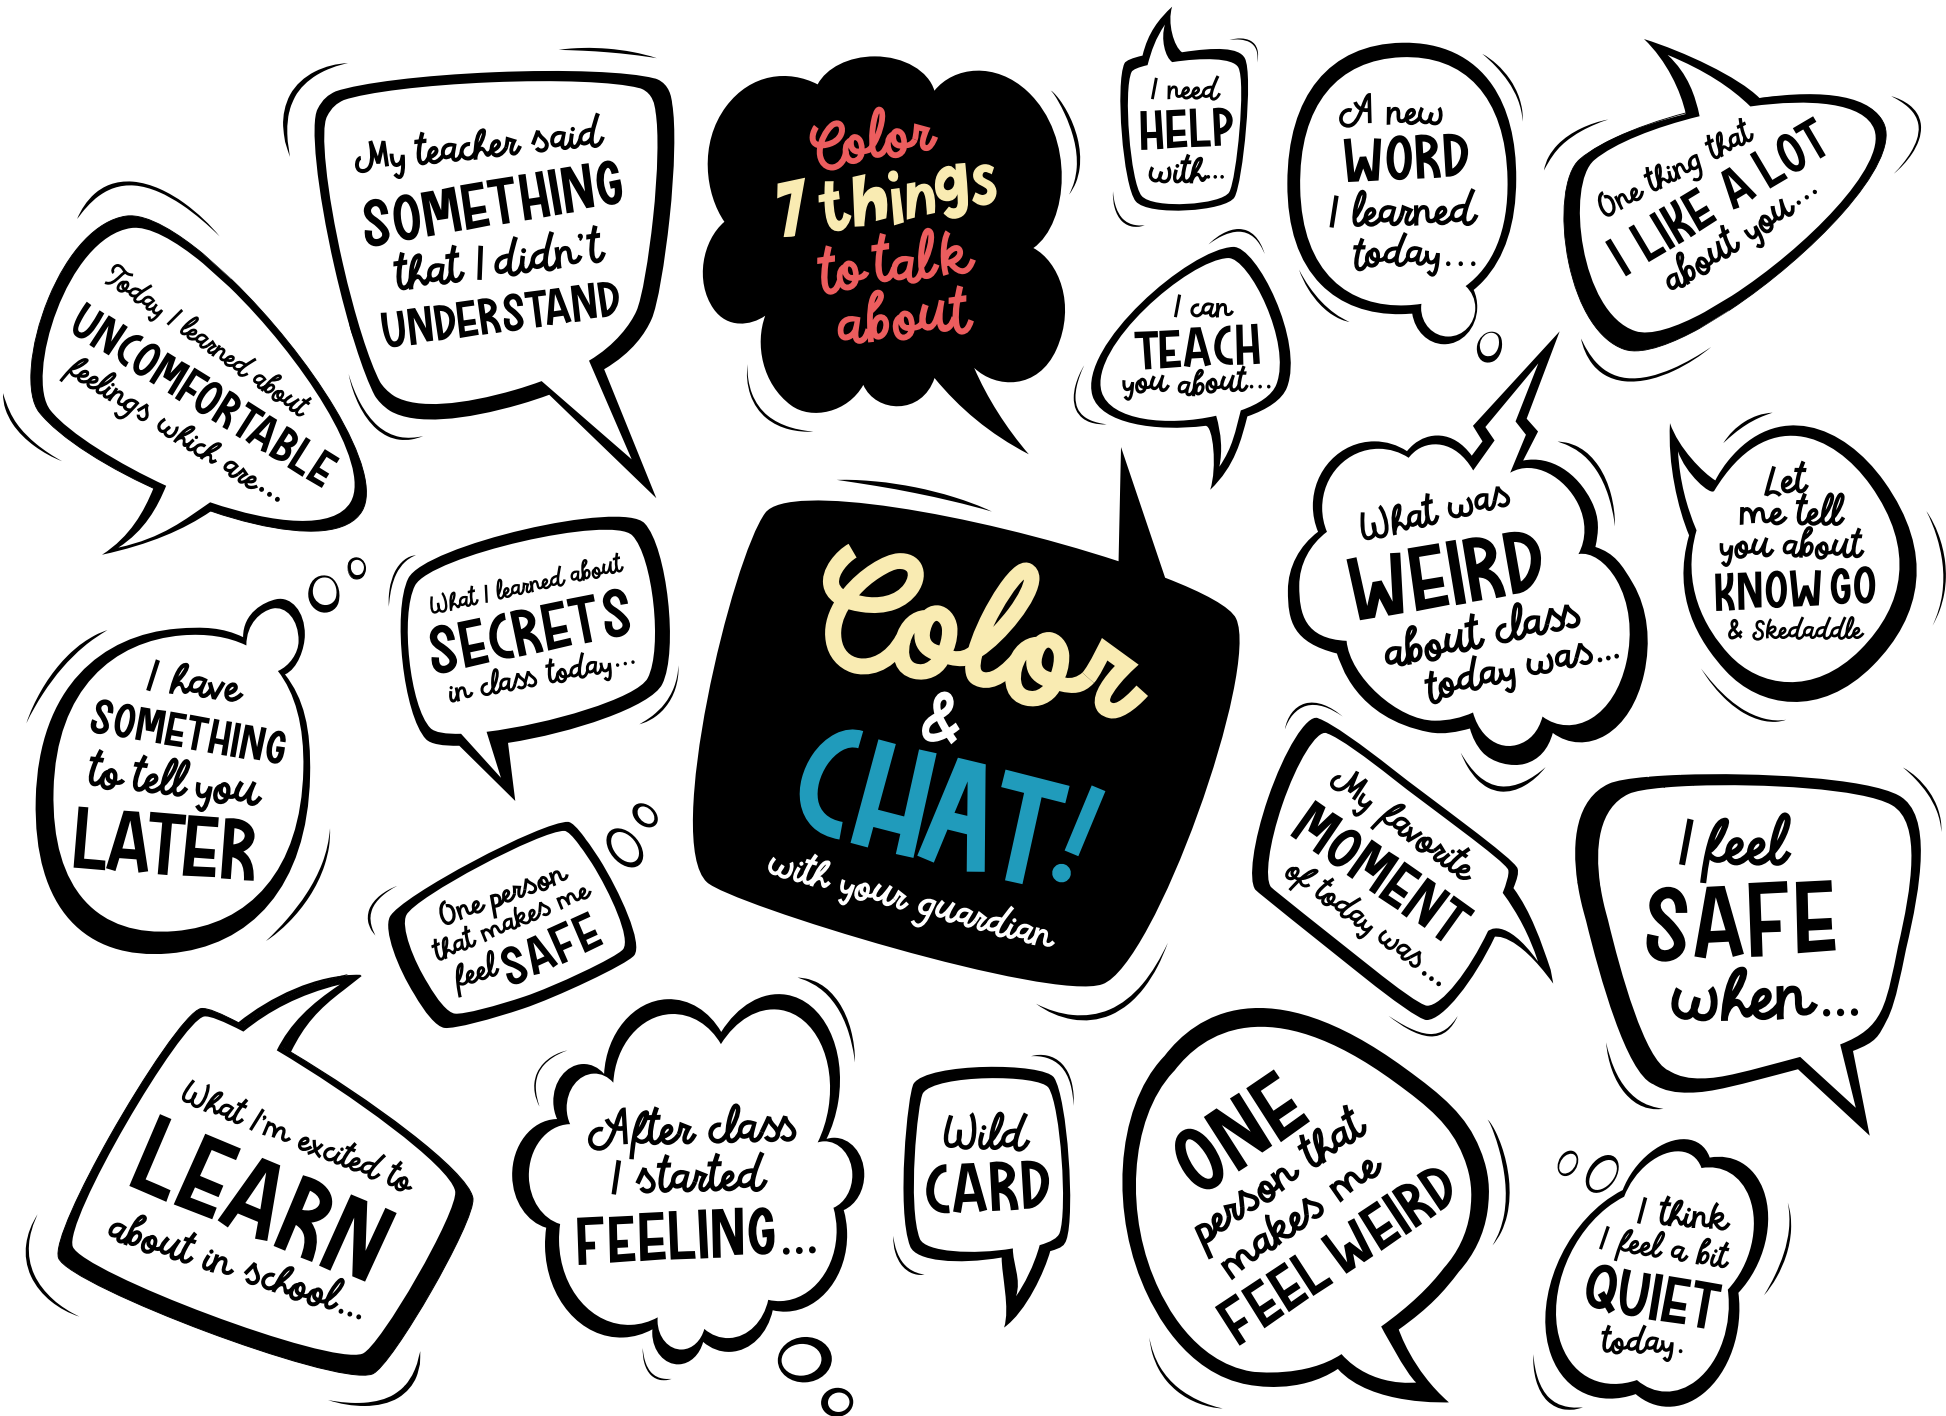 My teacher said
SOMETHING
that I didn't
UNDERSTAND
Color
7 things
to talk
about
I need
HELP
with...
A new
WORD
I learned
today...
One thing that
I LIKE A LOT
about you...
Today I learned about
UNCOMFORTABLE
feelings which are...
I can
TEACH
you about...
What was
WEIRD
about class
today was...
Let
me tell
you about
KNOW GO
& Skedaddle
What I learned about
SECRETS
in class today...
Color
&
CHAT!
with your guardian
I have
SOMETHING
to tell you
LATER
One person
that makes me
feel SAFE
My favorite
MOMENT
of today was...
I feel
SAFE
when...
What I'm excited to
LEARN
about in school...
After class
I started
FEELING...
Wild
CARD
ONE
person that
makes me
FEEL WEIRD
I think
I feel a bit
QUIET
today.